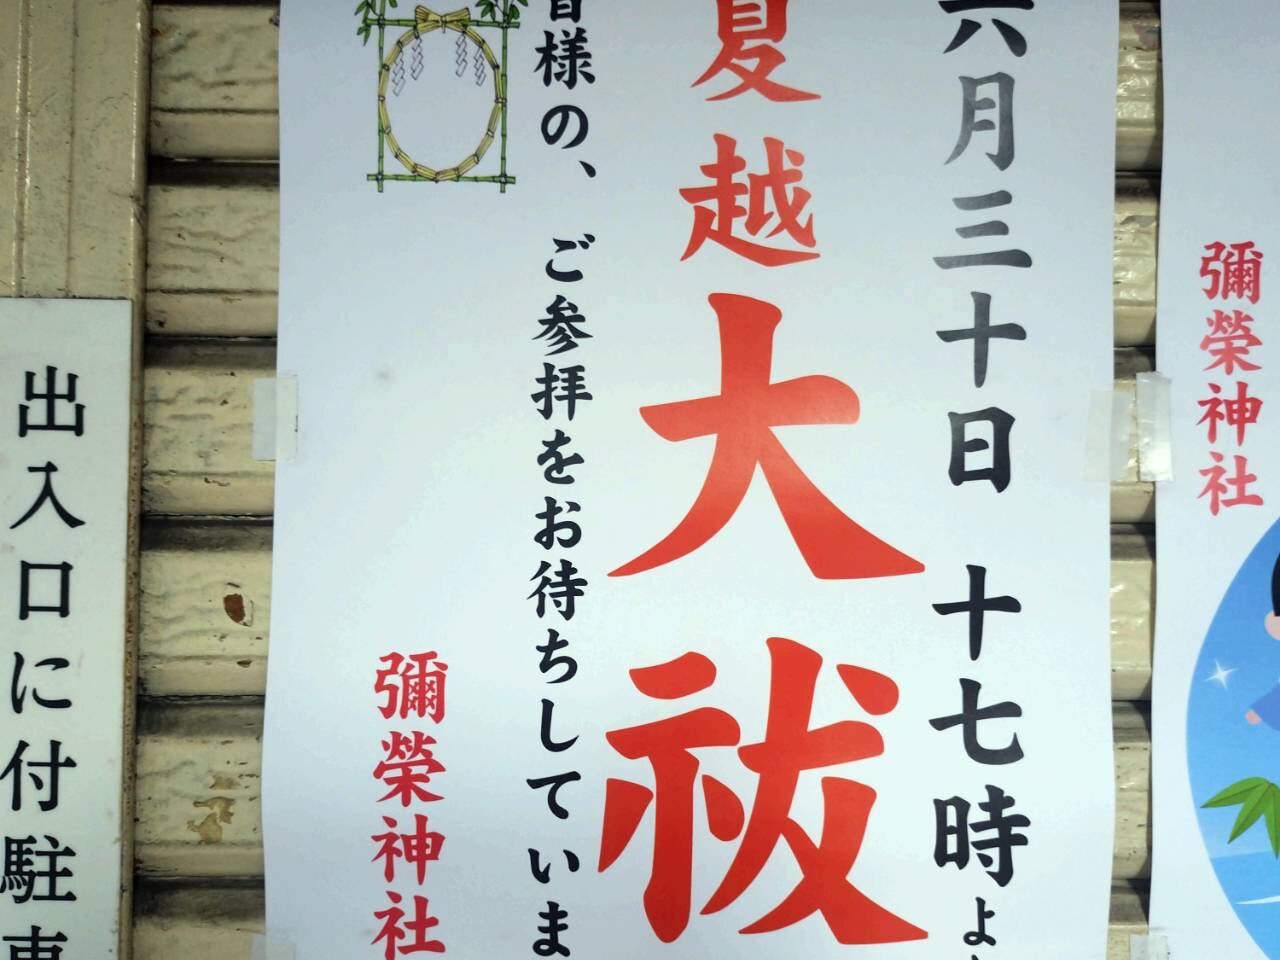 六月三十日 十七時よ
夏越大祓
皆様の、ご参拝をお待ちしていま
彌榮神社
彌榮神社
出入口に付駐車